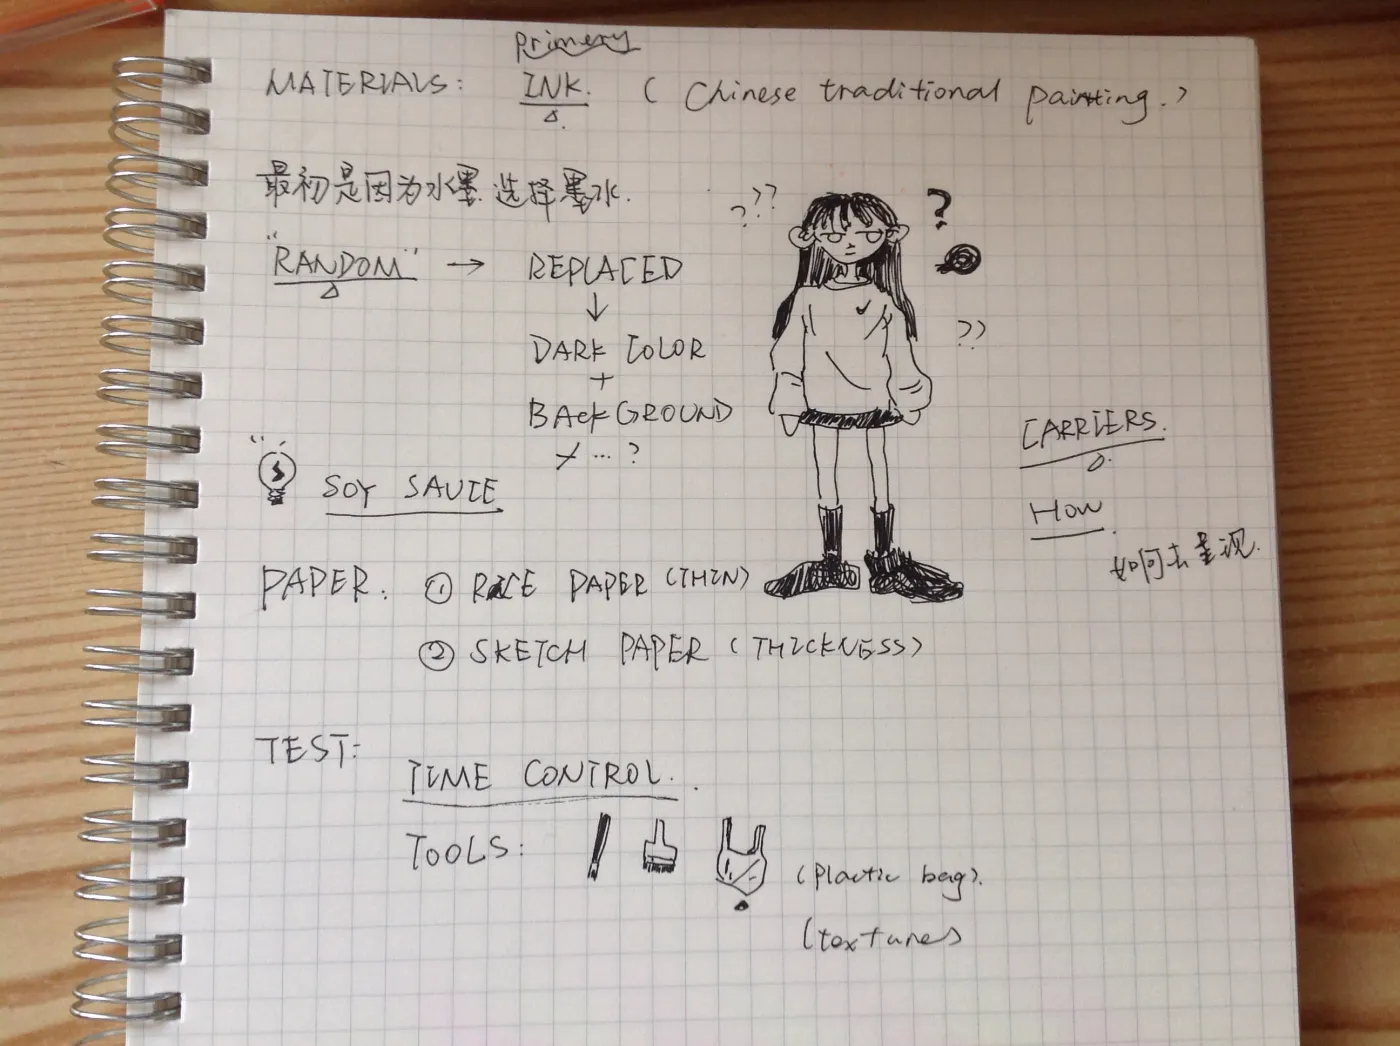 primery
MATERIALS: INK. (Chinese traditional painting.)
最初是因为水墨.选择墨水.
"RANDOM" → REPLACED
↓
DARK COLOR
+
BACKGROUND
... ?
?? ?
?
??
CARRIERS.
HOW
如何去呈现.
SOY SAUCE
PAPER: ① RICE PAPER (THIN)
② SKETCH PAPER (THICKNESS)
TEST:
TIME CONTROL.
TOOLS:
(plastic bag).
(texture)